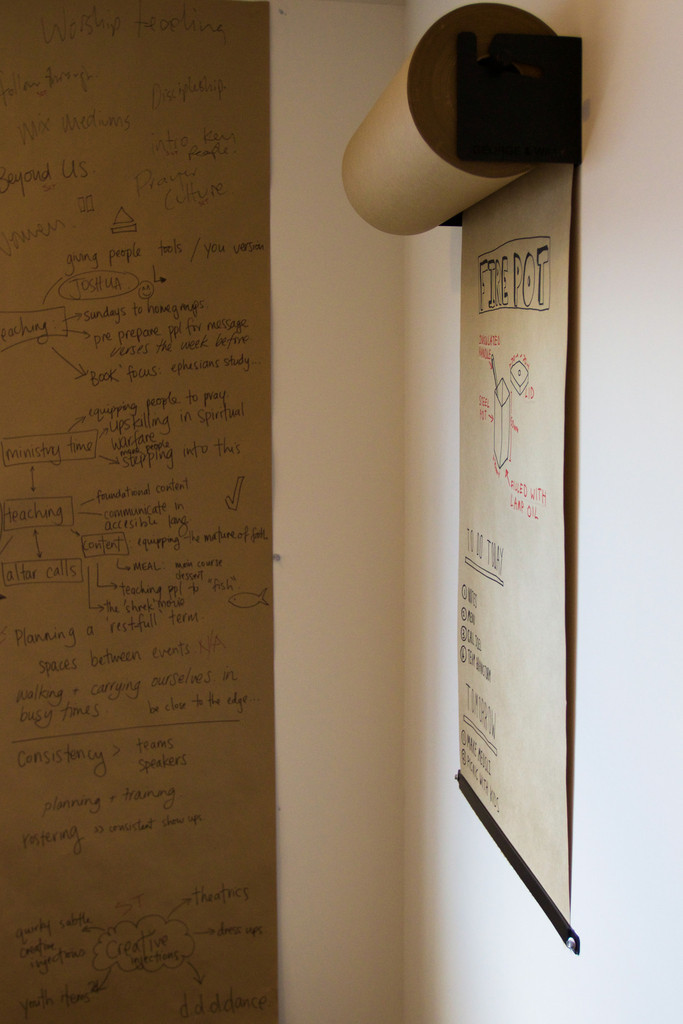 Worship teaching
follow through.
Discipleship
Mix Mediums
intro key
people.
Beyond Us.
Prayer
Culture.
Women.
giving people tools / you version
JOSHUA
teaching
sundays to homegroups
pre prepare ppl for message
verses the week before
'Book' focus: ephesians study...
ministry time
equipping people to pray
upskilling in Spiritual
warfare
more people
stepping into this
teaching
foundational content
communicate in
accesible lang
altar calls
content
equipping the nurture of
MEAL: main course
dessert
teaching ppl to "fish"
the 'shrek' movie
Planning a 'restfull' term.
spaces between events. N/A
walking + carrying ourselves in
busy times.
be close to the edge...
Consistency >
teams
speakers
planning + training
rostering => consistent show ups
ST
theatrics
quirky subtle
creative
injections
Creative
injections
dress ups
youth items
d.d.d.dance
FIRE POT
INSULATED
HANDLE
LID
STEEL
POT
FILLED WITH
LAMP OIL
TO DO TODAY
① NOTES
②
③
④ TEAM
TOMORROW
① MAKE
② PICNIC WITH KIDS